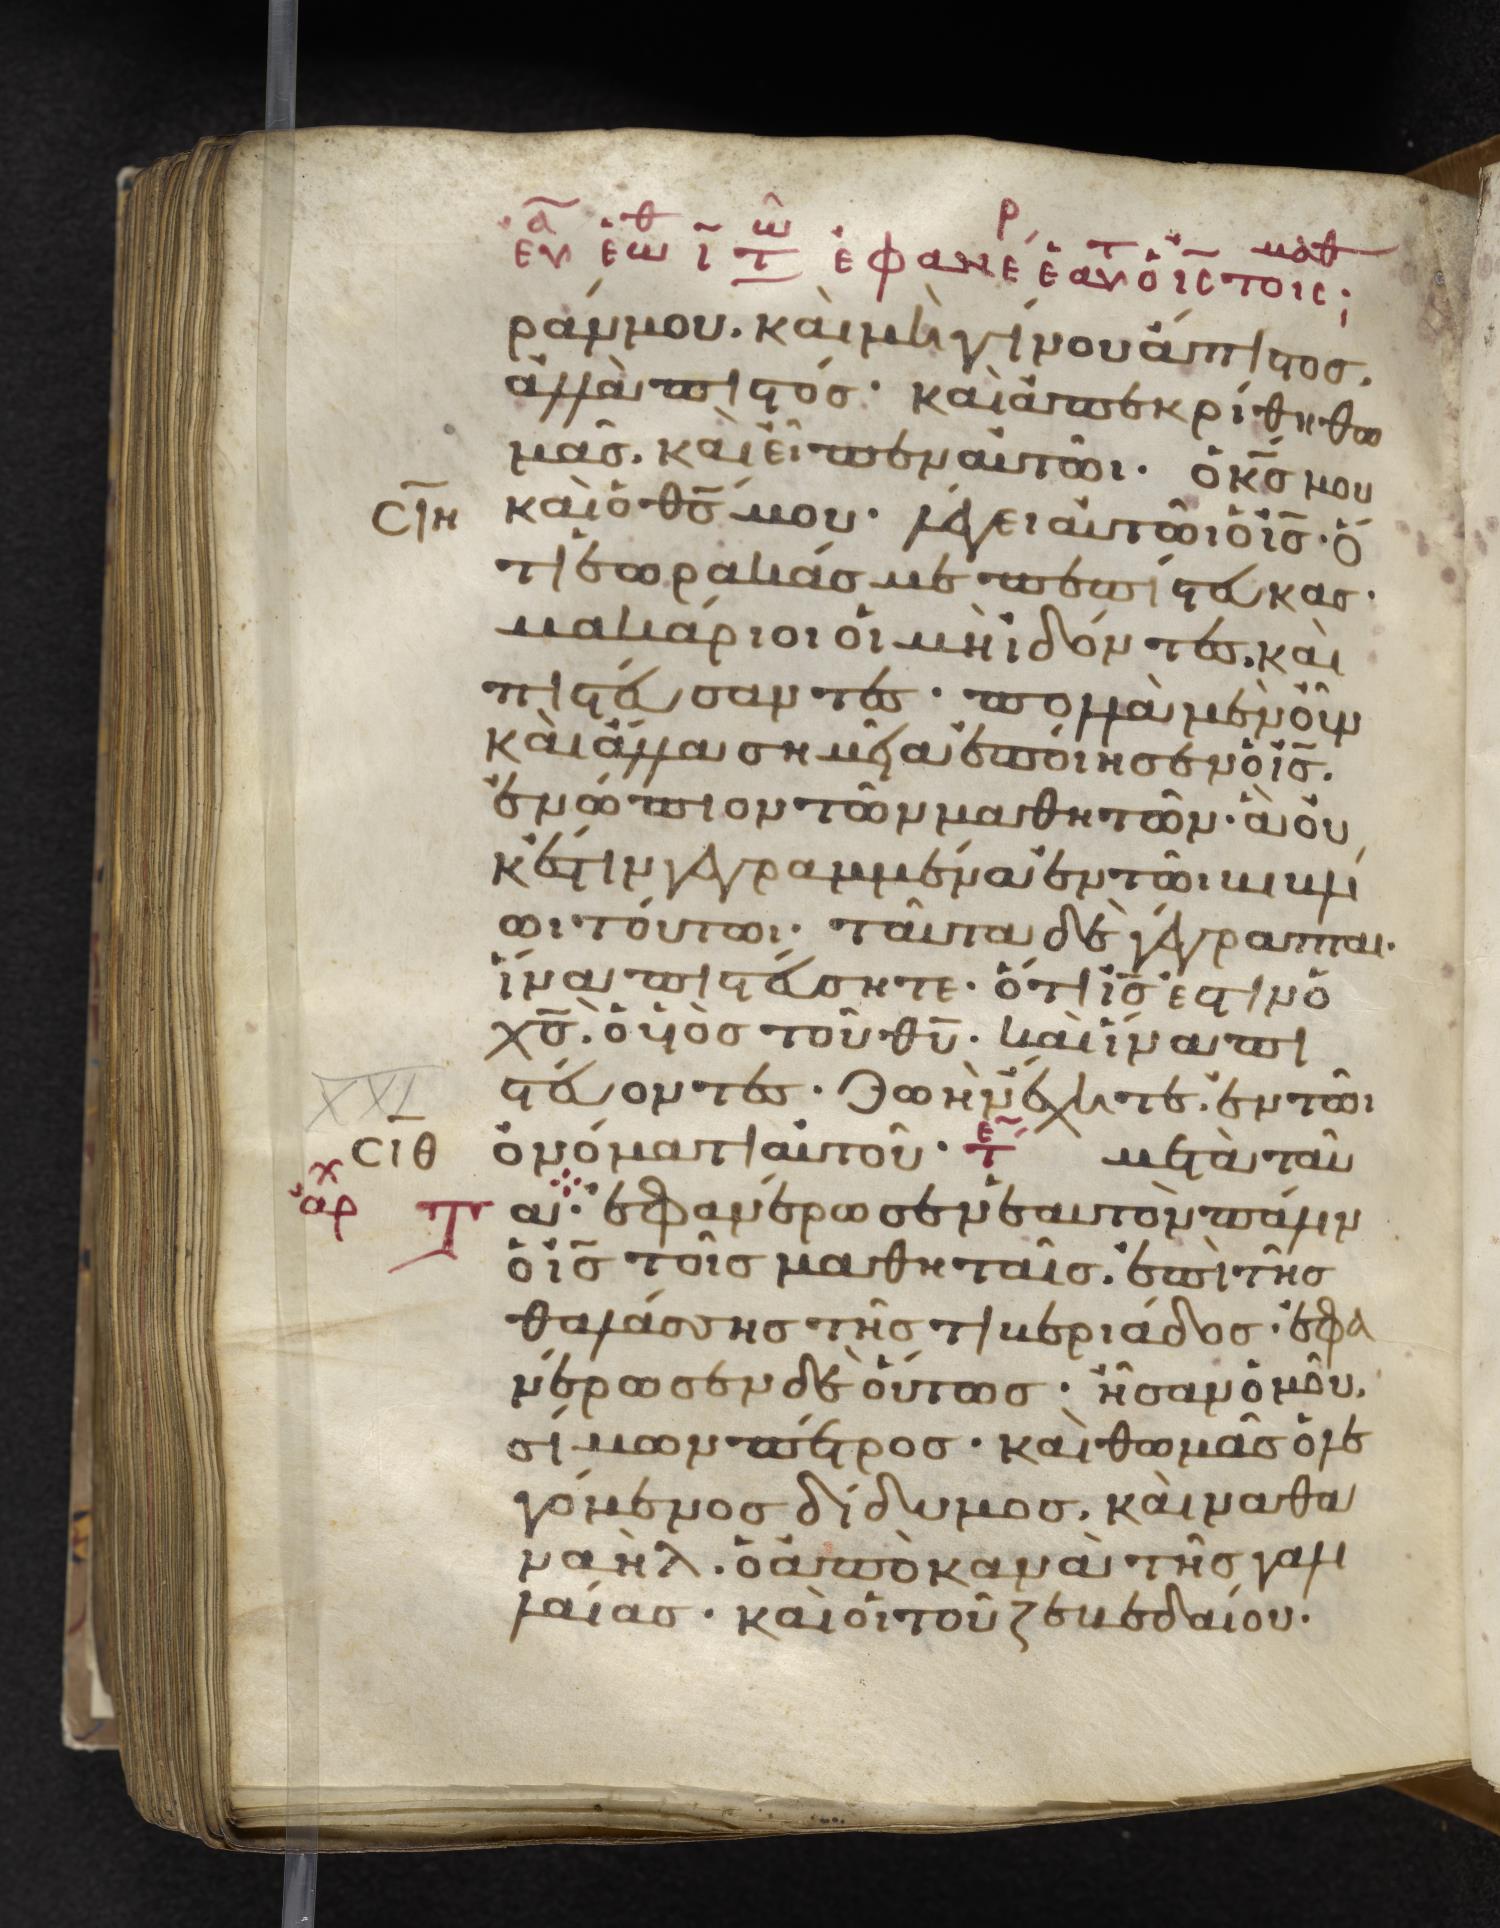 ράν μου. καὶ μὴ γίνου ἄπιστος.
ἀλλὰ πιστός· καὶ ἀπεκρίθη θω
μᾶς. καὶ εἶπεν αὐτῶι· ὁ κ̅ς̅ μου
σ̅ι̅η̅ καὶ ὁ θ̅ς̅ μου· λέγει αὐτῶι ὁ ι̅ς̅· ὅ
τι ἑώρακάς με πεπίστευκας·
μακάριοι οἱ μὴ ἰδόντες. καὶ
πιστεύσαντες· πολλὰ μὲν οὖν
καὶ ἄλλα σημεῖα ἐποίησεν ὁ ι̅ς̅.
ἐνώπιον τῶν μαθητῶν· ἃ οὐ
κ ἔστιν γεγραμμένα ἐν τῶι βιβλί
ωι τούτωι· ταῦτα δὲ γέγραπται·
ἵνα πιστεύσητε· ὅτι ι̅ς̅ ἐστιν ὁ
χ̅ς̅. ὁ υἱὸς τοῦ θ̅υ̅· καὶ ἵνα πι
XXI
στεύοντες· ζωὴν ἔχητε. ἐν τῶι
σ̅ι̅θ̅ ὀνόματι αὐτοῦ· τε μετὰ ταῦ
αρχ Τ
α· ἐφανέρωσεν ἑαυτὸν πάλιν
ὁ ι̅ς̅ τοῖς μαθηταῖς. ἐπὶ τῆς
θαλάσσης τῆς τιβεριάδος· ἐφα
νέρωσεν δὲ οὕτως· ἦσαν ὁμοῦ.
σίμων πέτρος· καὶ θωμᾶς ὁ λε
γόμενος δίδυμος. καὶ ναθα
ναὴλ. ὁ ἀπὸ κανὰ τῆς γαλι
λαίας· καὶ οἱ τοῦ ζεβεδαίου·